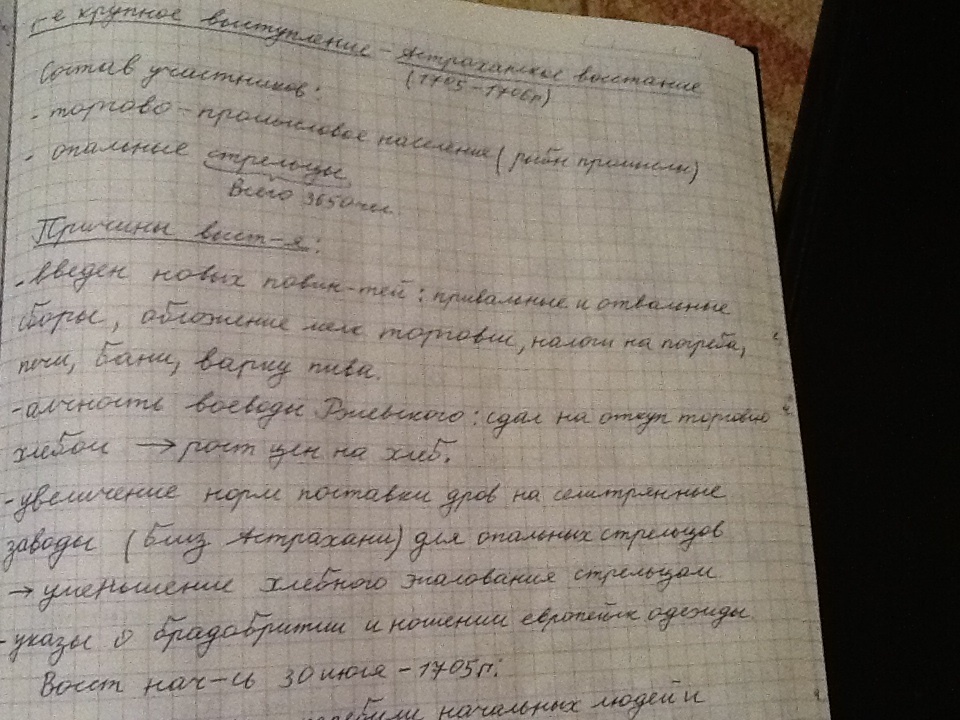 1-е крупное выступление - Астраханское восстание
(1705-1706г)
Состав участников:
- торгово-промысловое население (рыбн промыслы)
- опальные стрельцы
Всего 3650 чел.
Причины восст-я:
- введен новых повин-тей: привальные и отвальные
сборы, обложение мелк торговли, налоги на погреба,
печи, бани, варку пива.
- алчность воеводы Ржевского: сдал на откуп торговлю
хлебом → рост цен на хлеб.
- увеличение норм поставки дров на селитрянные
заводы (близ Астрахани) для опальных стрельцов
→ уменьшение хлебного жалования стрельцам
- указы о брадобритии и ношении европейск одежды
Восст нач-сь 30 июля - 1705г:
начальных людей и